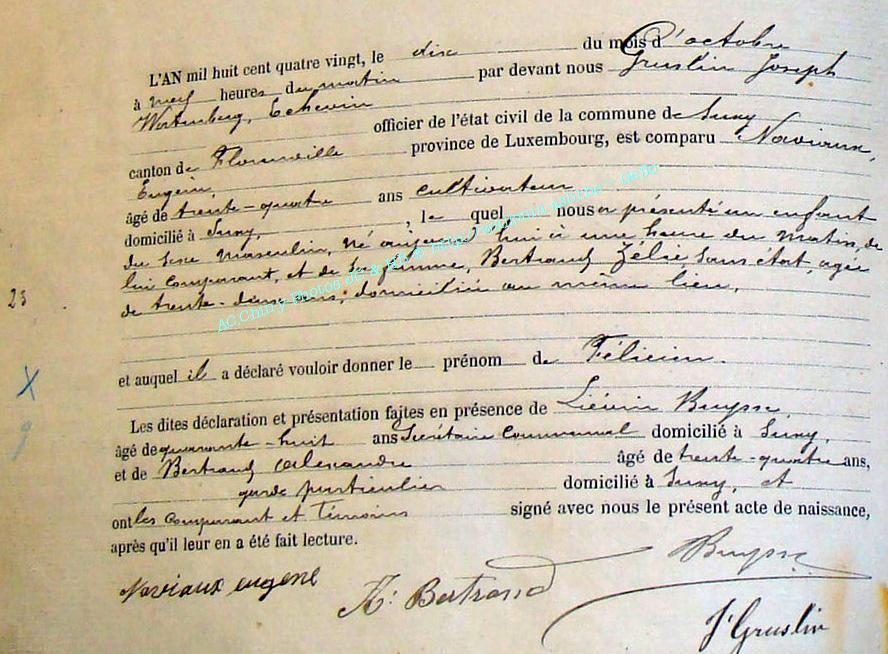 L'AN mil huit cent quatre vingt, le dix du mois d'octobre
à neuf heures du matin par devant nous Gruslin Joseph
Wurtemberg, Echevin
officier de l'état civil de la commune de Suxy
canton de Florenville province de Luxembourg, est comparu Naviaux,
Eugène
âgé de trente-quatre ans cultivateur
domicilié à Suxy, , le quel nous a présenté un enfant
du sexe masculin, né aujourd'hui à une heure du matin, de
lui comparant, et de sa femme, Bertrand Zélie sans état, agée
de trente- ans; domiciliée au même lieu.
25
et auquel il a déclaré vouloir donner le prénom de Félicien.
X
Les dites déclaration et présentation faites en présence de Liévin Buysse,
âgé de quarante-huit ans Secrétaire communal domicilié à Suxy,
et de Bertrand Alexandre âgé de trente-quatre ans,
garde particulier domicilié à Suxy, et
ont les comparant et témoins signé avec nous le présent acte de naissance,
après qu'il leur en a été fait lecture.
Naviaux eugene
Buysse
Ax Bertrand
J Gruslin